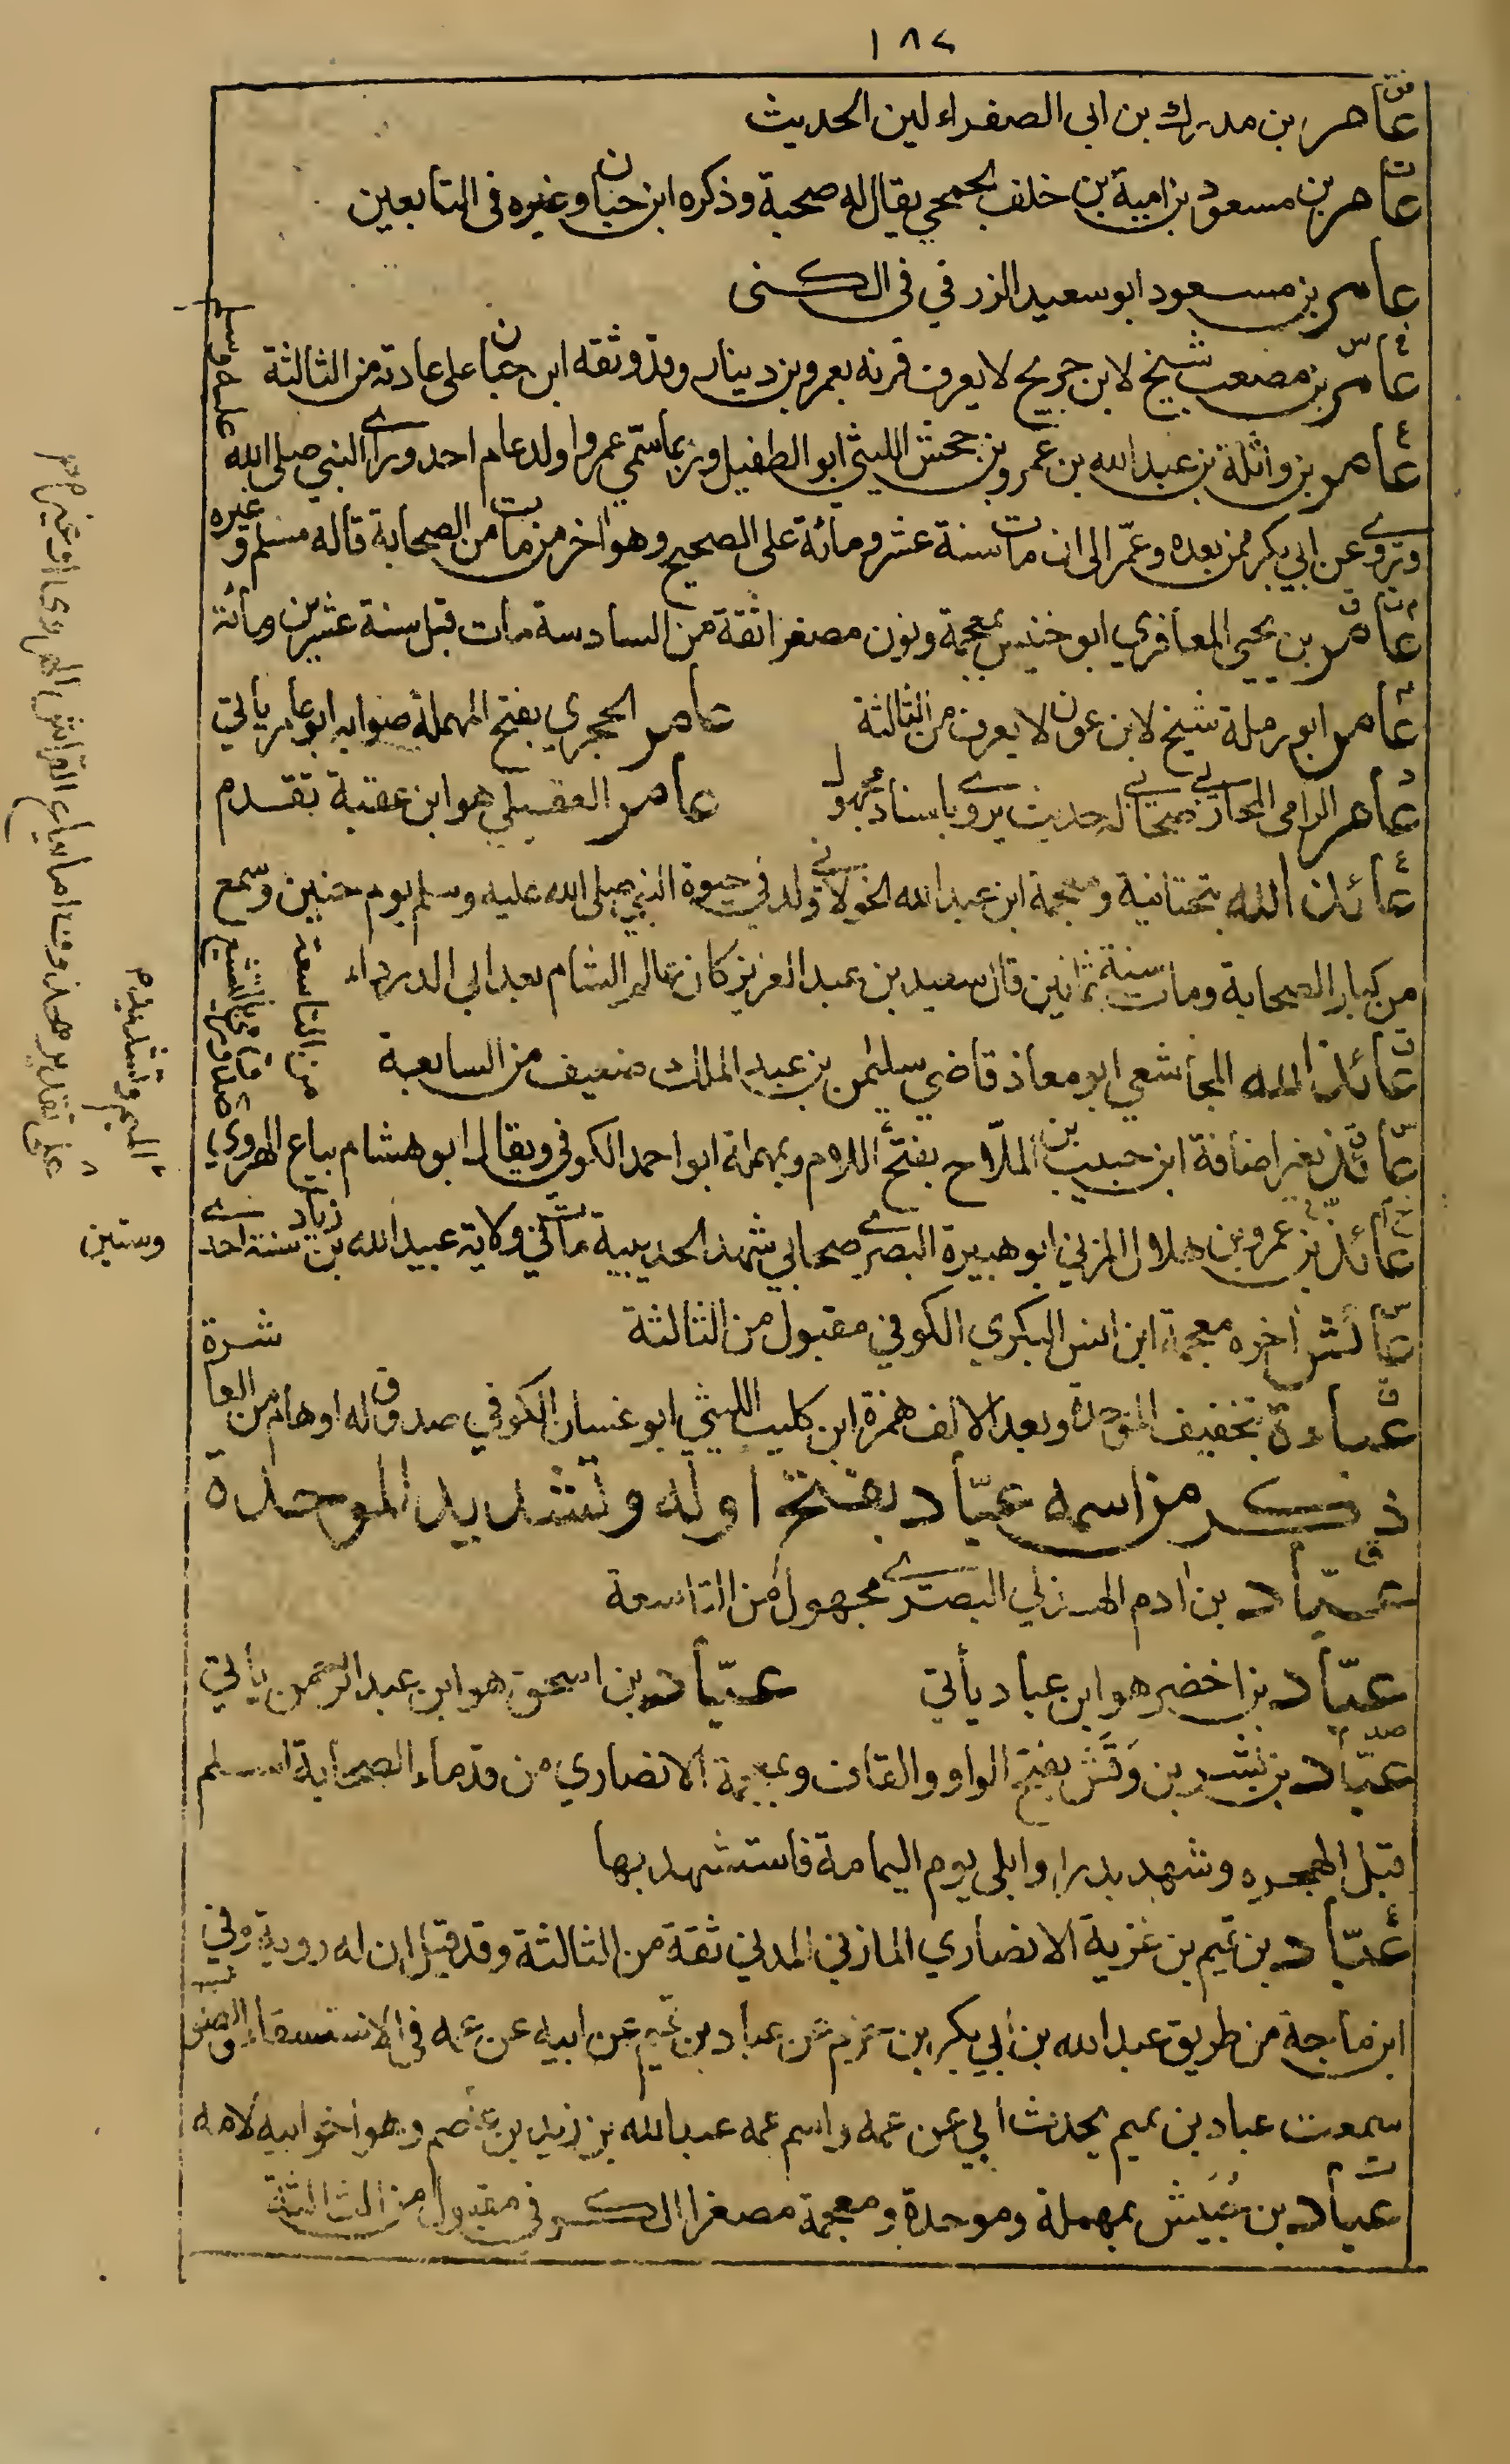 ١٨٢
عامر بن مدرك بن ابى الصفراء لين الحديث
عامر بن مسعود بن امية بن خلف الجمحي يقال له صحبة وذكره ابن حبان وغيره فى التابعين
عامر بن مسعود ابو سعيد الزرقي فى الكنى
عامر بن مصعب شيخ لابن جريج لا يعرف قرنه بعمرو بن دينار وقد وثقه ابن حبان على عادته من الثالثة
عامر بن واثلة بن عبد الله بن عمرو بن جحش الليثي ابو الطفيل وربما سمي عمروا ولد عام احد وراى النبي صلى الله
عليه وسلم
وروى عن ابي بكر فمن بعده وعمّر الى ان مات سنة عشر ومائة على الصحيح وهو اخر من مات من الصحابة قاله مسلم وغيره
عامر بن يحيى المعافري ابو خنيس بمعجمة ونون مصغرا ثقة من السادسة مات قبل سنة عشرين ومائة
عامر ابو رملة شيخ لابن عون لا يعرف من الثالثة عامر الحجري بفتح المهملة صوابه ابو عامر يأتي
عامر الرامى المحاربي صحابي له حديث يروى باسناد مجهول عامر العقيلي هو ابن عقبة تقدم
عائذ الله بتحتانية ومعجمة ابن عبد الله الخولاني ولد في حيوة النبي صلى الله عليه وسلم يوم حنين وسمع
من كبار الصحابة ومات سنة ثمانين قال سعيد بن عبد العزيز كان عالم الشام بعد ابى الدرداء
عائذ الله المجاشعي ابو معاذ قاضي سليمن بن عبد الملك ضعيف من السابعة
عائذ بغير اضافة ابن حبيب بن الملّاح بفتح اللام وبمهملة ابو احمد الكوفى ويقال ابو هشام بياع الهروي
صدوق رمي بالتشيع
من التاسعة
عائذ بن عمرو بن هلال المزني ابو هبيرة البصرى صحابي شهد الحديبية مات في ولاية عبيد الله بن زياد سنة احدى
وستين
عائش اخره معجمة ابن انس البكري الكوفي مقبول من الثالثة
عباءة بتخفيف الموحدة وبعد الالف همزة ابن كليب الليثي ابو غسان الكوفي صدوق له اوهام من العا
شرة
ذكر من اسمه عبّاد بفتح اوله وتشديد الموحدة
عبّاد بن ادم الهذلي البصرى مجهول من التاسعة
عبّاد بن اخضر هو ابن عباد يأتى عبّاد بن اسحق هو ابن عبد الرحمن يأتي
عبّاد بن بشر بن وَقَش بفتح الواو والقاف وبمعجمة الانصاري من قدماء الصحابة اسلم
قبل الهجره وشهد بدرا وابلى يوم اليمامة فاستشهد بها
عبّاد بن تميم بن غزية الانصاري المازني المدني ثقة من الثالثة وقد قيل ان له روية وفي
ابن ماجة من طريق عبد الله بن ابي بكر بن حزم عن عباد بن تميم عن ابيه عن عمه فى الاستسقاء
سمعت عباد بن تميم يحدث ابي عن عمه واسم عمه عبد الله بن زيد بن عاصم وهو اخو ابيه لامه
عبّاد بن حُبَيش بمهملة وموحدة ومعجمة مصغرا الكوفى مقبول من الثالثة